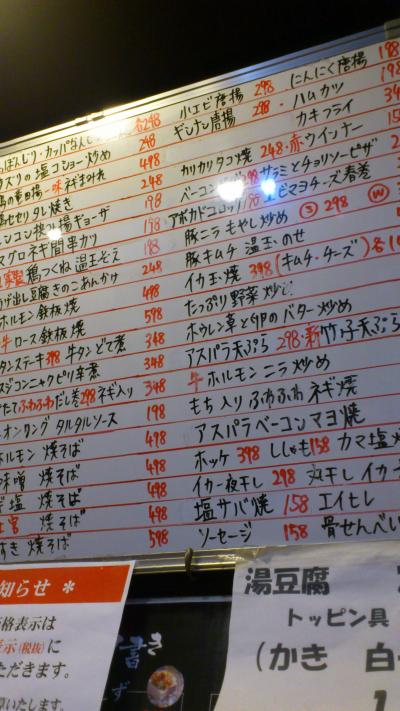 ぼんじり・カッパなんこつ 各248
小エビ唐揚 298 にんにく唐揚 198
スリの塩コショー炒め 498
ギンナン唐揚 298・ハムカツ 198
カキフライ
248
カリカリタコ焼 248・赤ウインナー
もせせりタレ焼き 198
レンコン挟み揚ギョーザ
アボカドコロッケ
エビマヨチーズ春巻
マグロネギ間串カツ 198
豚ニラもやし炒め
鶏つくね 温玉そえ 248
豚キムチ 温玉のせ
揚げ出し豆腐きのこあんかけ 498
イカ玉焼 398 (キムチ・チーズ) 各
ホルモン鉄板焼 598
たっぷり野菜炒め
牛ロース鉄板焼 348
ホウレン草と卵のバター炒め
タンステーキ398 牛タンどて煮 348
アスパラ天ぷら 298・新竹の子天ぷら
スジコンニャクピリ辛煮 348
牛ホルモンニラ炒め
たてふわふわだし巻298 ネギ入り 348
もち入りふわふわネギ焼
オニオンリング タルタルソース 198
アスパラベーコンマヨ焼
ホルモン 焼そば 498
ホッケ 398 ししゃも158 カマ塩
味噌 焼そば 498
イカ一夜干し 298 丸干しイカ
塩 焼そば 498
塩サバ焼 158 エイヒレ
焼そば 498
ソーセージ 158 骨せんべい
すき 焼そば 598
知らせ *
価格表示は
表示(税抜)に
ただきます。
いたします。
書き
湯豆腐
トッピン具
(かき 白